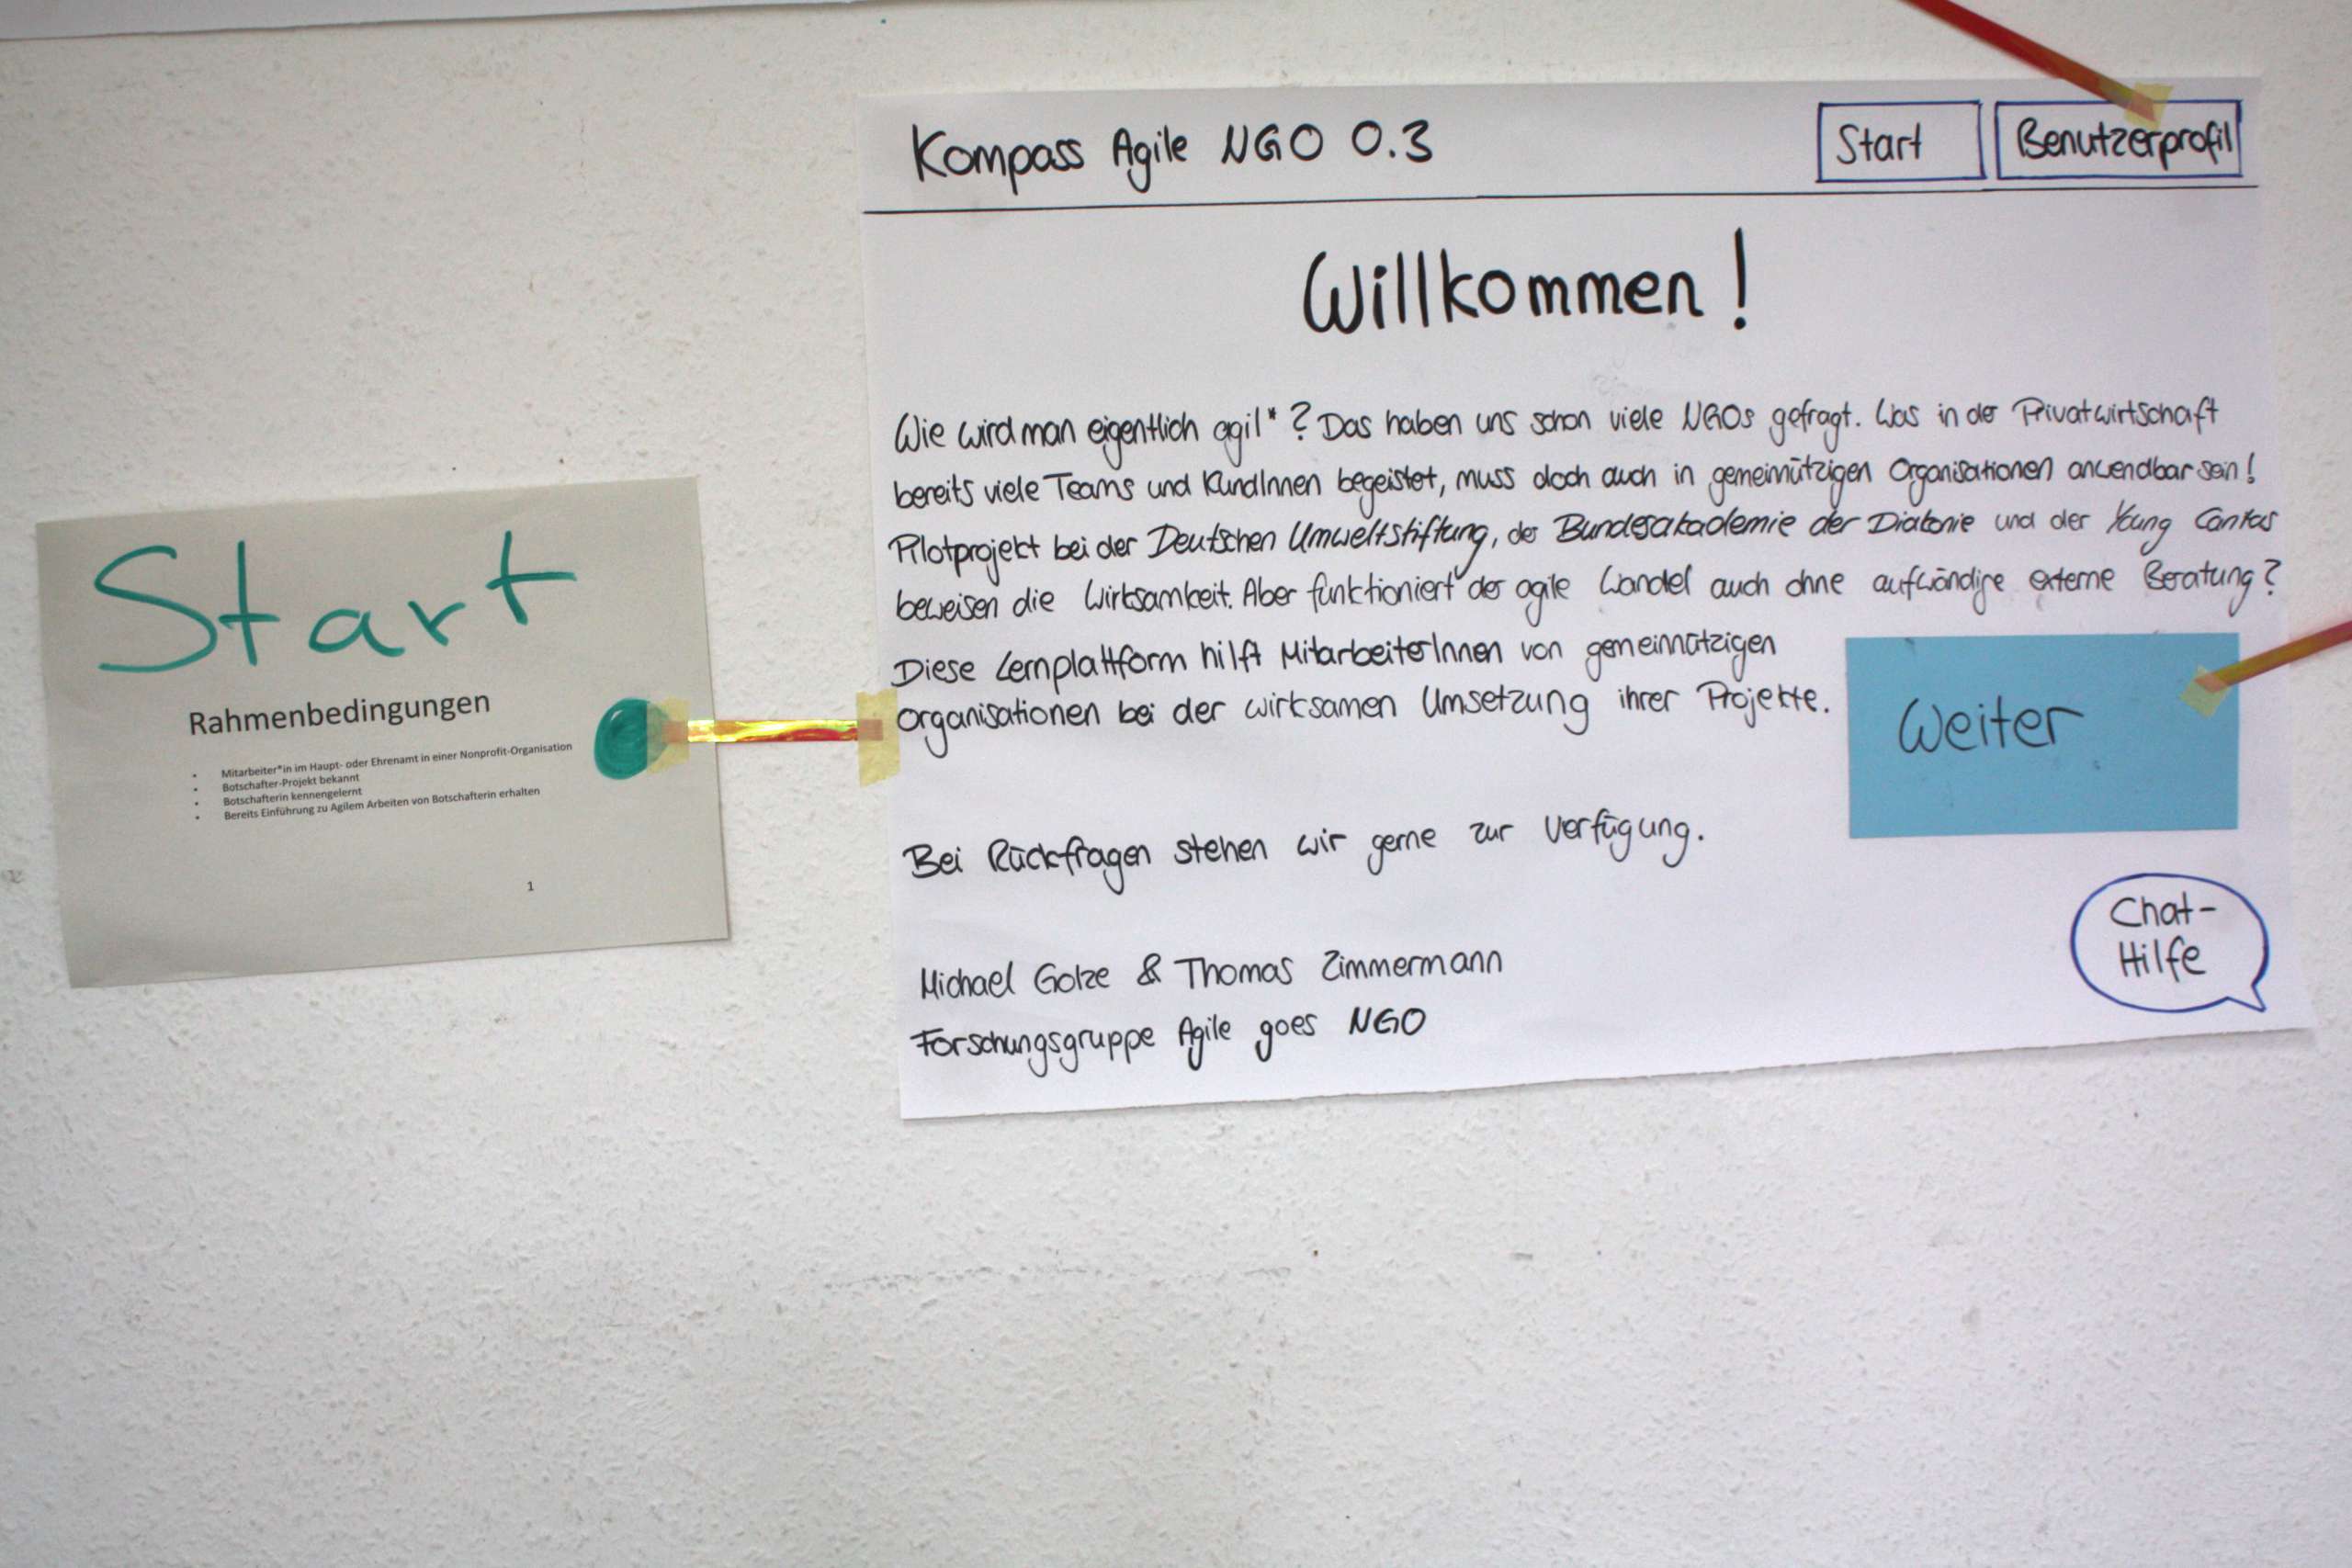 Start
Rahmenbedingungen
• Mitarbeiter*in im Haupt- oder Ehrenamt in einer Nonprofit-Organisation
• Botschafter-Projekt bekannt
• Botschafterin kennengelernt
• Bereits Einführung zu Agilem Arbeiten von Botschafterin erhalten
1
Kompass Agile NGO 0.3
Start
Benutzerprofil
Willkommen!
Wie wird man eigentlich agil*? Das haben uns schon viele NGOs gefragt. Was in der Privatwirtschaft
bereits viele Teams und KundInnen begeistert, muss doch auch in gemeinnützigen Organisationen anwendbar sein!
Pilotprojekt bei der Deutschen Umweltstiftung, der Bundesakademie der Diakonie und der Young Caritas
beweisen die Wirksamkeit. Aber funktioniert der agile Wandel auch ohne aufwändige externe Beratung?
Diese Lernplattform hilft MitarbeiterInnen von gemeinnützigen
Organisationen bei der wirksamen Umsetzung ihrer Projekte.
Weiter
Bei Rückfragen stehen wir gerne zur Verfügung.
Chat-
Hilfe
Michael Golze & Thomas Zimmermann
Forschungsgruppe Agile goes NGO